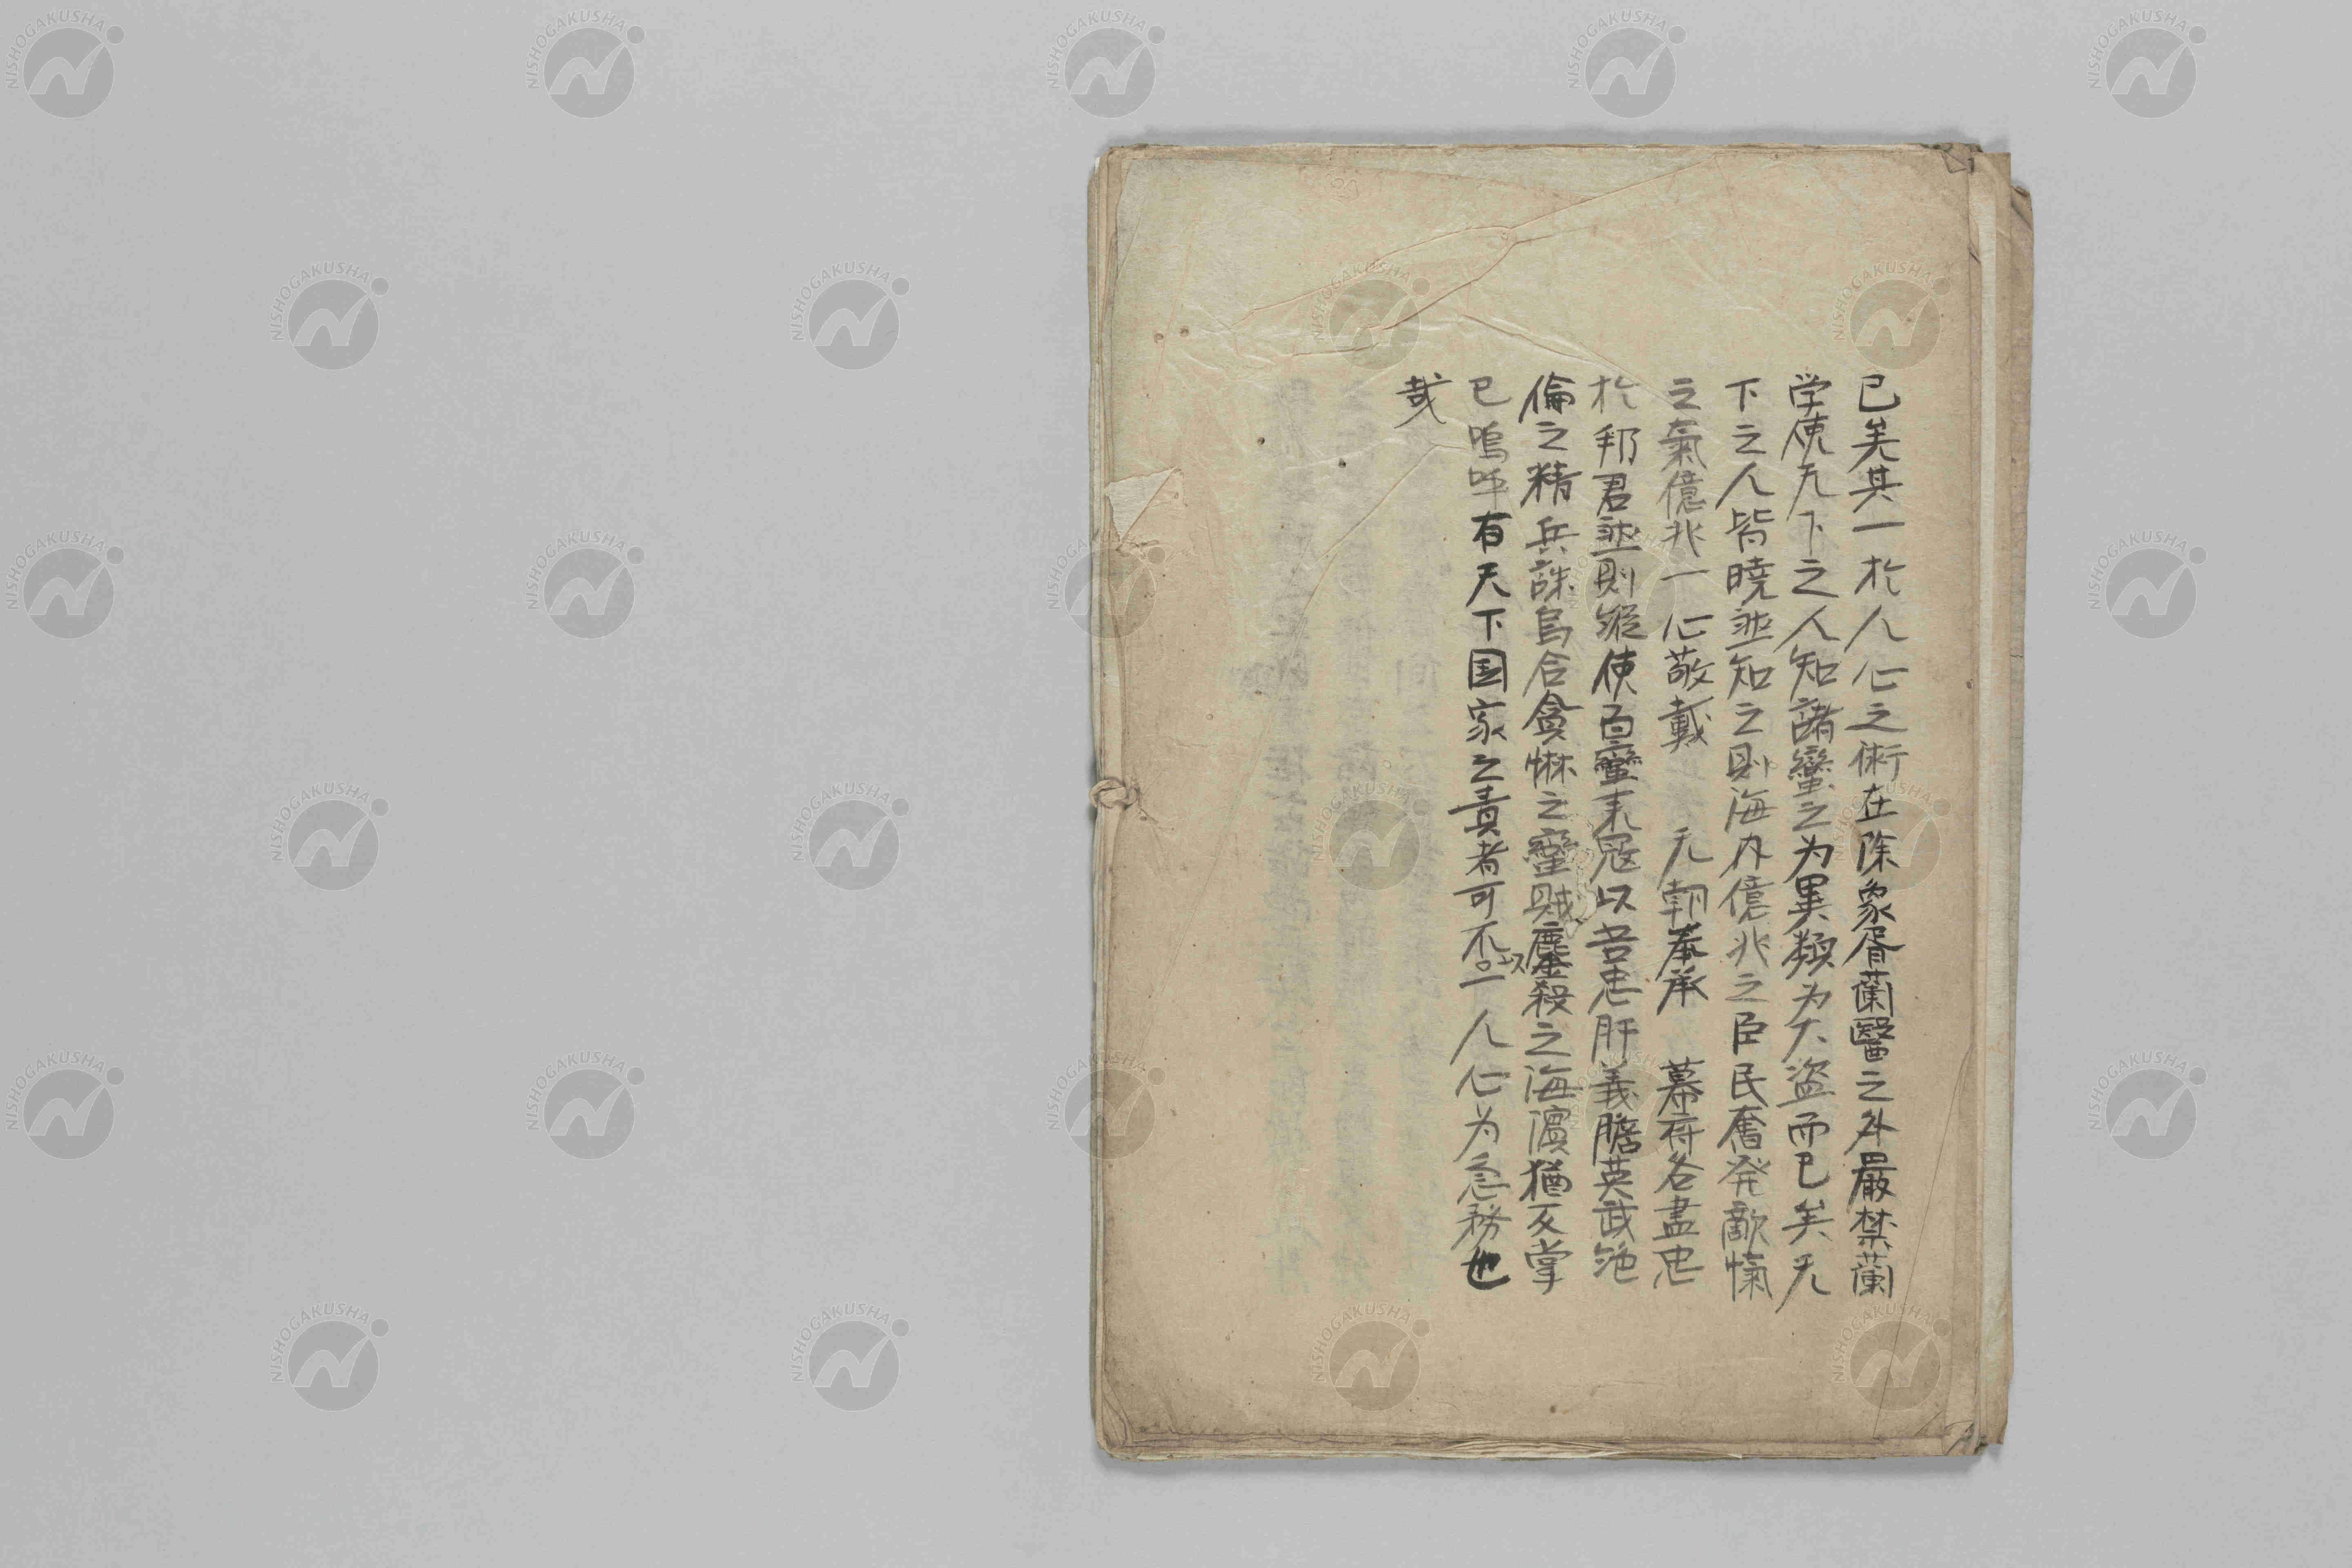 已矣其一於人心之術在除象胥蘭醫之外嚴禁蘭
学使天下之人知諸蠻之为異類为大盗而已矣天
下之人皆暁然知之則海内億兆之臣民奮発敵愾
之氣億兆一心敬戴　天朝奉承　幕府各盡忠
於邦君然則縦使百蠻来寇以吾忠肝義膽英武絶
倫之精兵誅烏合貪惏之蠻賊鏖殺之海濱猶反掌
已嗚呼有天下国家之責者可不以一人心为急務也
哉
NISHOGAKUSHA